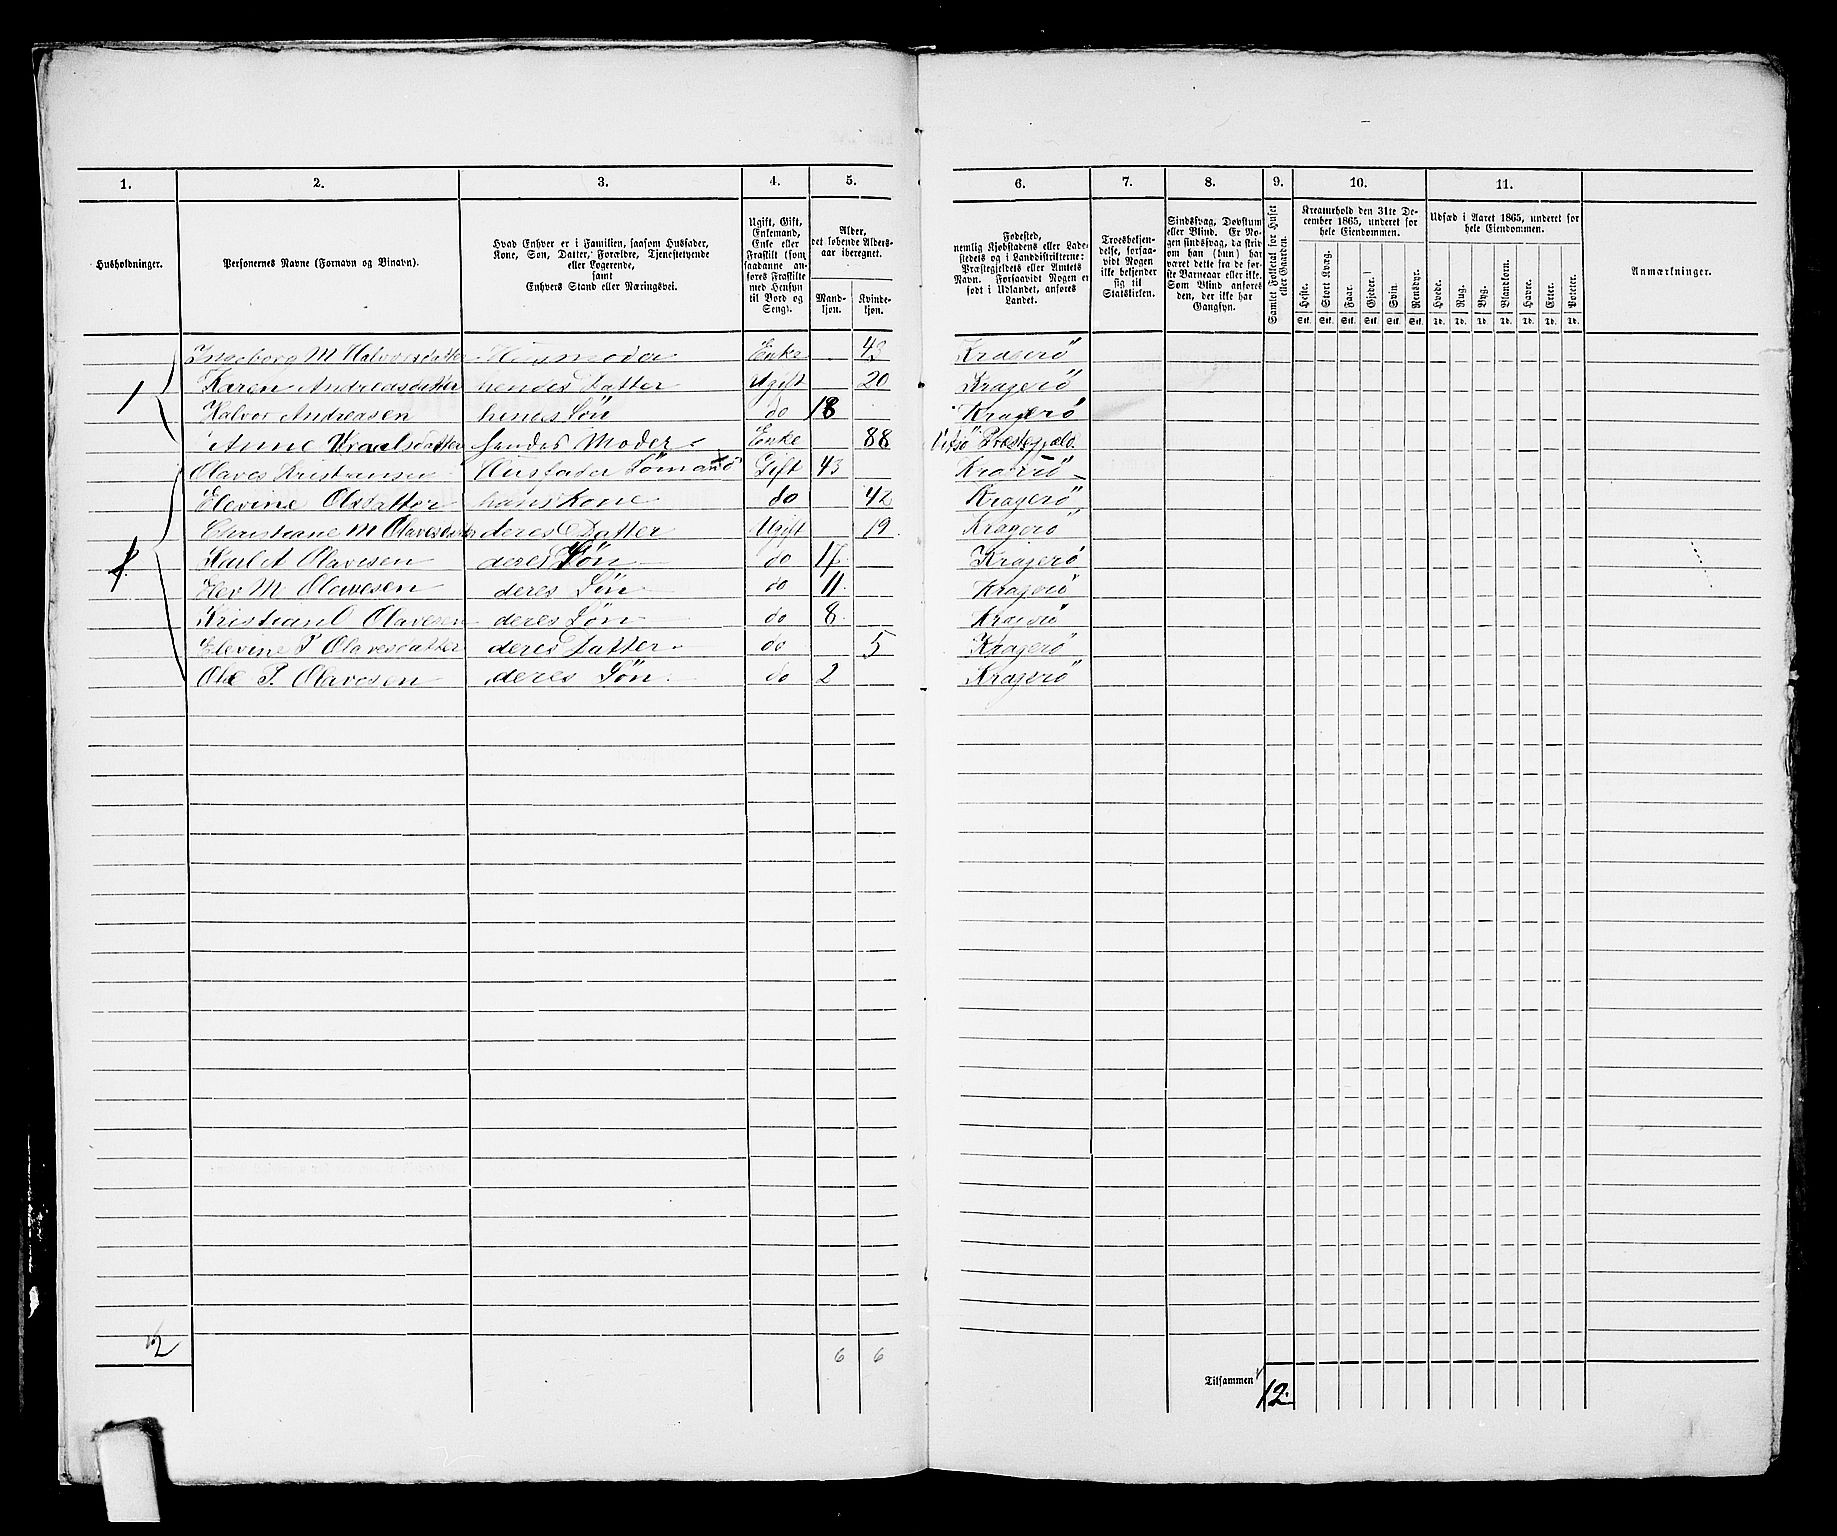 1. 2. 3. 4. 5. 6. 7. 8. 9. 10. 11.
Husholdninger.
Personernes Navne (Fornavn og Binavn).
Hvad Enhver er i Familien, saasom Husfader,
Kone, Søn, Datter, Forældre, Tjenestetyende
eller Logerende,
samt
Enhvers Stand eller Næringsvei.
Ugift, Gift,
Enkemand,
Enke eller
Fraskilt (som
saadanne an-
føres Fraskilte
med Hensyn
til Bord og
Seng).
Alder,
det løbende Alders-
aar iberegnet.
Mand-
kjøn.
Kvinde-
kjøn.
Fødested,
nemlig Kjøbstadens eller Lade-
stedets og i Landdistrikterne:
Præstegjeldets eller Amtets
Navn. Forsaavidt Nogen er
født i Udlandet, anføres
Landet.
Troesbekjen-
delse, forsaa-
vidt Nogen
ikke bekjender
sig til
Statskirken.
Sindssvag, Døvstum
eller Blind. Er No-
gen sindssvag, da skriv
om han (hun) har
været dette fra de før-
ste Barneaar eller ikke.
Som Blind anføres
den, der ikke har
Gangsyn.
Samlet Folketal for Huset
eller Gaarden.
Kreaturhold den 31te De-
cember 1865, underet for
hele Eiendommen.
Heste. Stort Kvæg. Faar. Gjeder. Svin. Rensdyr.
Stk. Stk. Stk. Stk. Stk. Stk.
Udsæd i Aaret 1865, underet for
hele Eiendommen.
Hvede. Rug. Byg. Blandkorn. Havre. Erter. Poteter.
Td. Td. Td. Td. Td. Td. Td.
Anmærkninger.
1 Ingeborg M Halvorsdatter Husmoder Enke Kragerö
Karen Andreasdatter hendes Datter Ugift 20 Kragerö
Halvor Andreasen henes Søn do 18 Kragerö
Anne Moder Enke 88 Præstegjæld.
2. Olaves Kristiansen Husfader Gift 43 Kragerö
Elevine Olsdatter hans Kone do 42 Kragerö
Christiane M Olavesdatter deres Datter Ugift 19 Kragerö
Karl A Olavesen deres Søn do 17 Kragerö
M Olavesen deres Søn do 11 Kragerö
Kristian O Olavesen deres Søn do 8 Kragerö
Elevine P Olavesdatter deres Datter do 5 Kragerö
Ole P. Olavesen deres Søn do 2 Kragerö
2 6 6
Tilsammen 12.